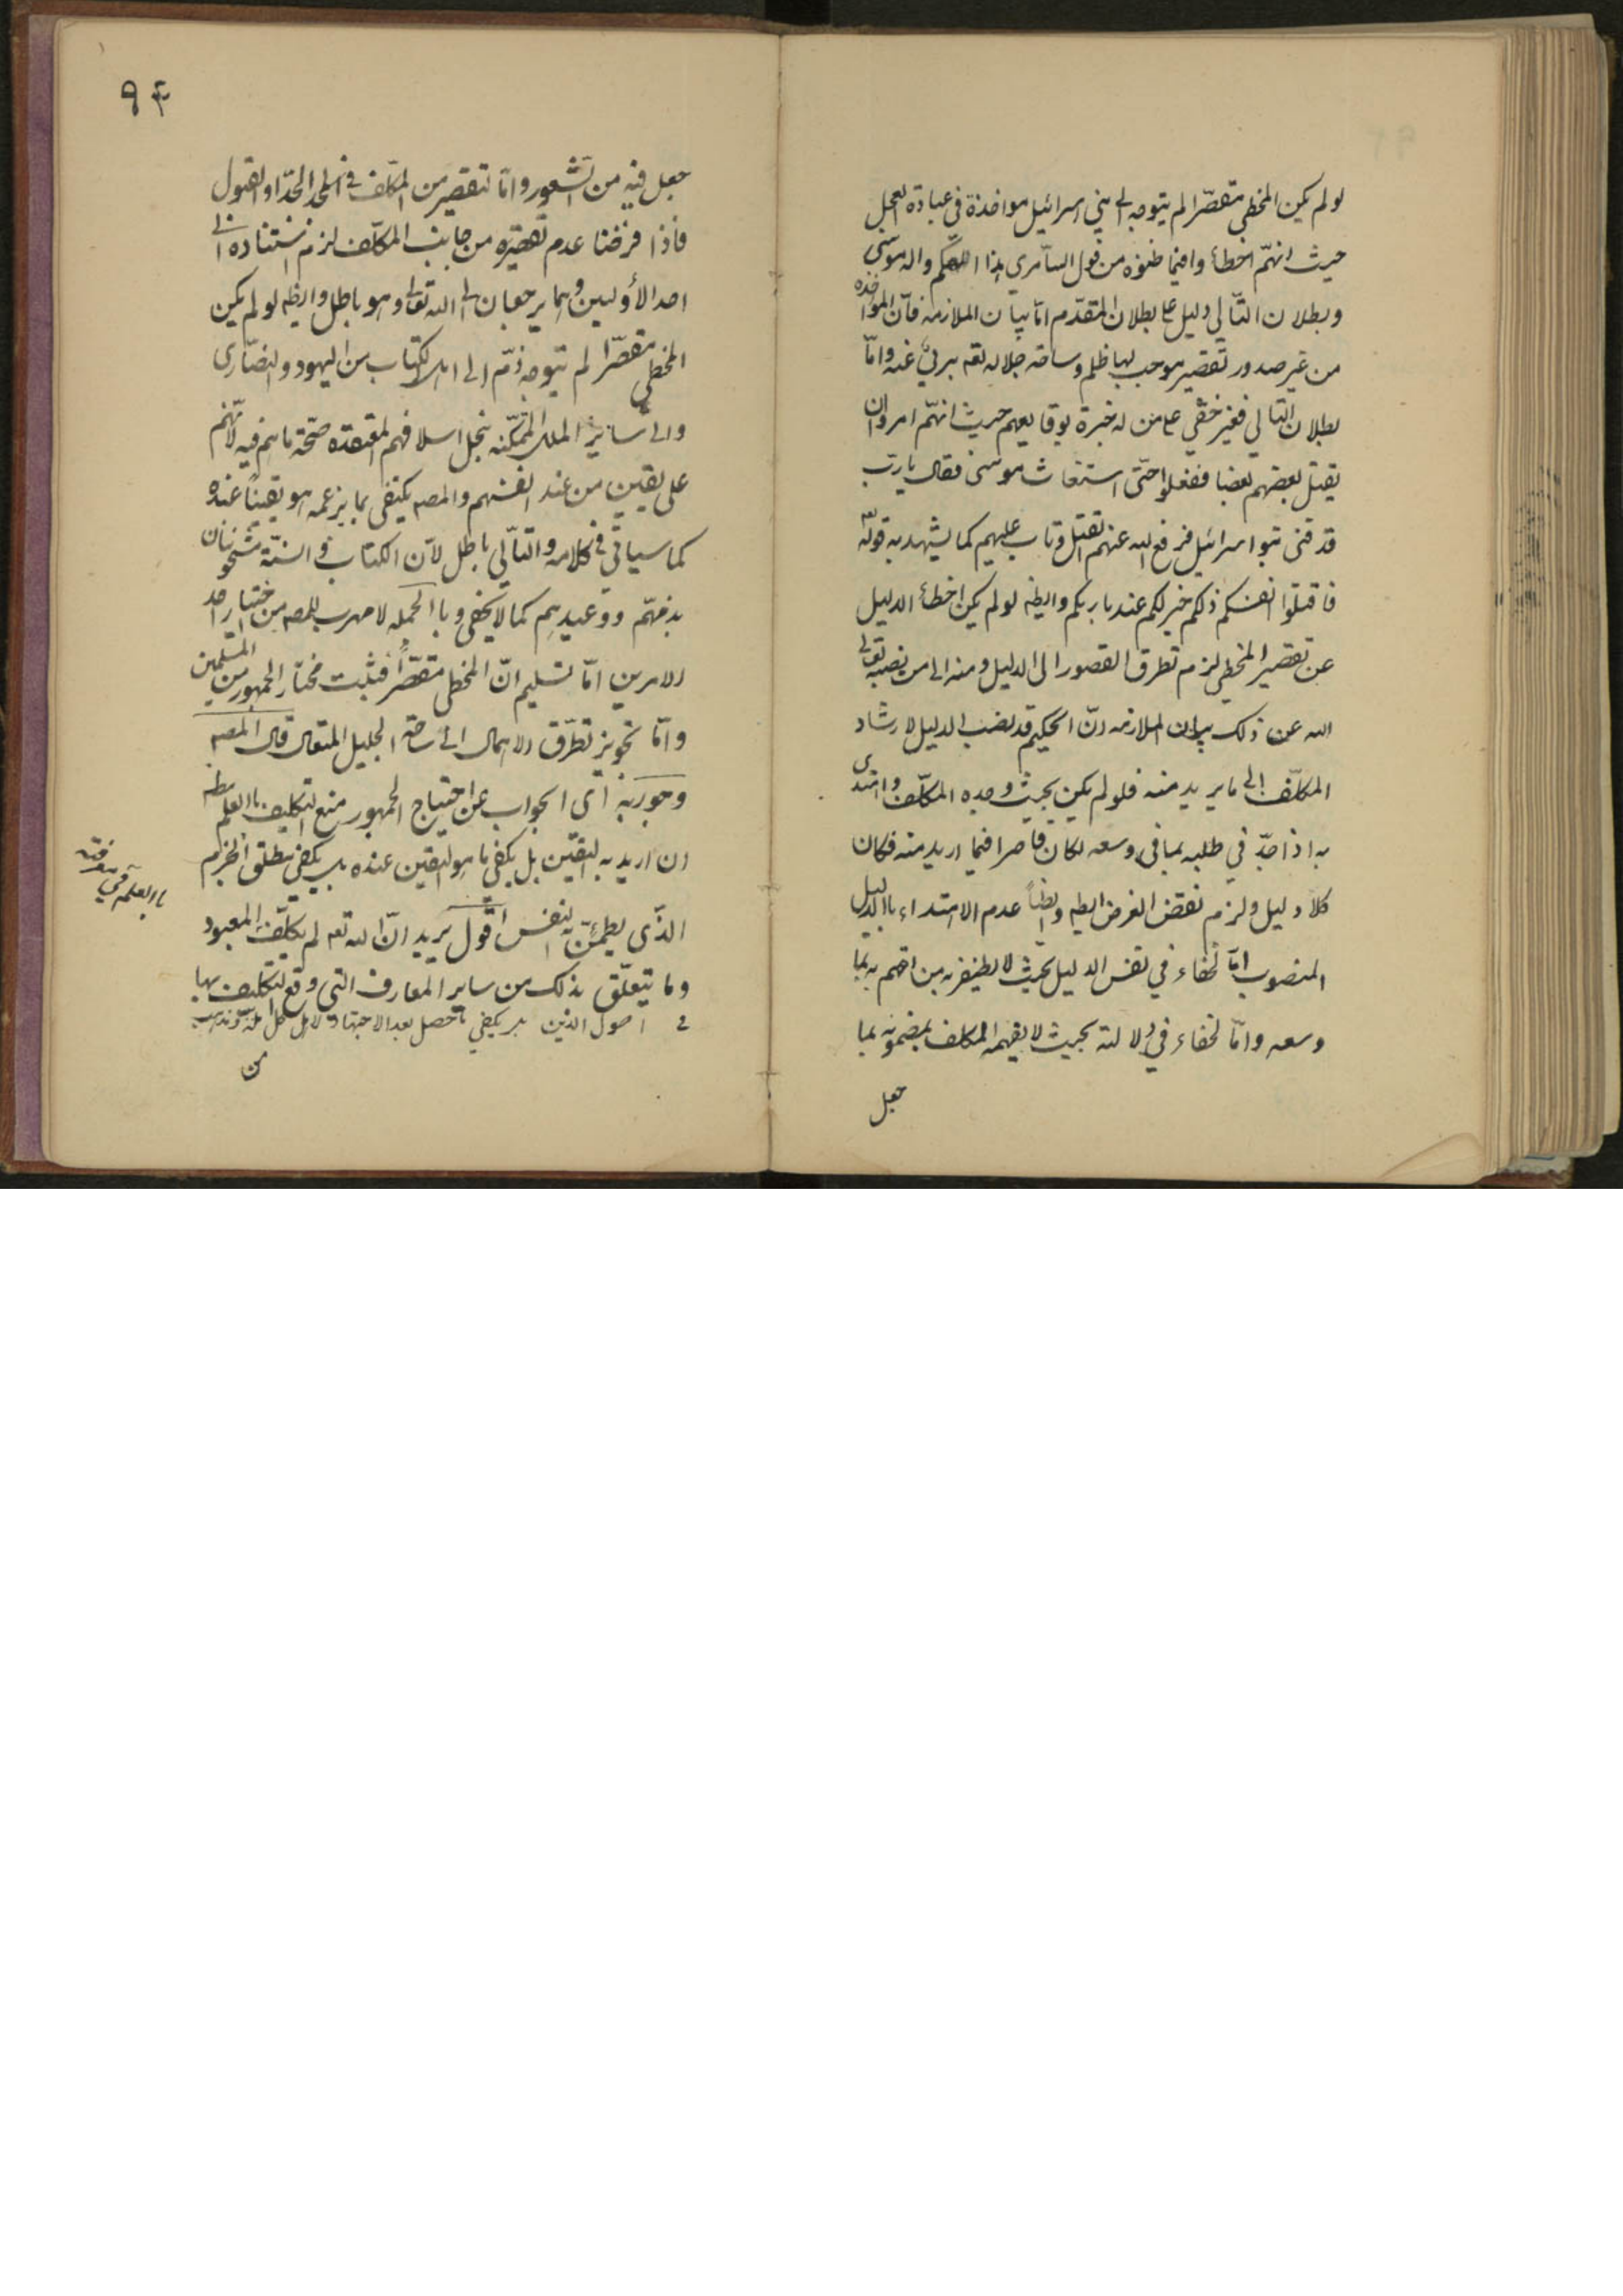 لو لم يكن المخطي مقصّرا لم يتوجه الى بني اسرائيل مواخذة في عبادة العجل
حيث انهّم اخطأوا فيما ظنوه من قول السامري هذا الهكم واله موسى
وبطلان التّالي دليل على بطلان المتقدّم امّا بيان الملازمة فلأن المؤاخذه
من غير صدور تقصير موجب لها ظلم وساحة جلاله تعه بريئ عنه وامّا
بطلان التالي فغير خفّي على من له خبرة بوقايعهم حيث انهّم امروا ان
يقتل بعضهم بعضا ففعلوا حتّى استغاث موسى فقال يا ربّ
قد فنى بنوا اسرائيل فرفع الله عنهم القتل وتاب عليهم كما يشهد به قوله تعه
فاقتلوا انفسكم ذلكم خير لكم عند باريكم وايضه لو لم يكن اخطأ الدليل
عن تقصير المخطي لزم تطرق القصور الى الدليل ومنه الى من نصبه تعالى
الله عن ذلك بيان الملازمه انّ الحكيم قد نصب الدليل لارشاد
المكلّف الى ما يريد منه فلو لم يكن بحيث وجده المكلّف واهتدى
به اذا جدّ في طلبه بما في وسعه لكان قاصرا فيما اريد منه فكان
كلا دليل ولزم نقض الغرض ايضه وايضاً عدم الاهتداء باالدليل
المنصوب امّا لخفاء في نفس الدليل بحيث لا يظفر به من اهتم به بما
وسعه وامّا لخفاء في دلالته بحيث لا يفهمه المكلف بمضمونه بما
جعل
٩٤
جعل فيه من الشعور وامّا لتقصير من المكلّف في الجدّ او القبول
فاذا فرضنا عدم تقصيره من جانب المكلّف لزم استناده الى
احد الأوليين وهما يرجعان الى الله تعالى وهو باطل وايضه لو لم يكن
المخطي مقصّرا لم يتوجه ذمّ الى اهل الكتاب من اليهود والنصّارى
والى ساير الملل المتمكّنه بنجل اسلافهم المعتقده صحّة ما هم فيه لانّهم
على يقين من عند انفسهم والمصه يكتفى بما يزعمه هو يقيناً عنده
كما سيأتي في كلامه والتّالي باطل لأن الكتاب والسنّة مشحونان
بذمّهم ووعيدهم كما لا يخفى وباالجمله لا مهرب للمصه من اختيار احد
الامرين امّا تسليم انّ المخطي مقصّراً فثبت مختار الجمهور من المسلمين
وامّا تجويز تطرّق الاهمال الى ساحة الجليل المتعال قال المصه
وجوابه اى الجواب عن احتجاج الجمهور منع التكليف باالعلم
ان اريد به اليقين بل يكفى ما هو اليقين عنده بل يكفي مطلق الجزم
باالعلم في معرفته
الذّى يطمئنّ به النفس اقول يريد انّ الله تعه لم يكلّف المعبود
وما يتعلّق بذلك من ساير المعارف التي وقع التكليف بها
في اصول الدّين بل يكفي ما حصل بعد الاجتهاد لاهل كل ملّة ومذهب
من